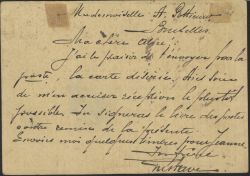 Mademoiselle A.
Bruxelles
Ma chère
J'ai le plaisir de t'envoyer par la
poste, la carte désirée,
de m'en accuser réception le plus tôt
possible. Tu signeras le livre des postes
contre remise de la présente
Envoies moi quelques timbres pour Jeanne